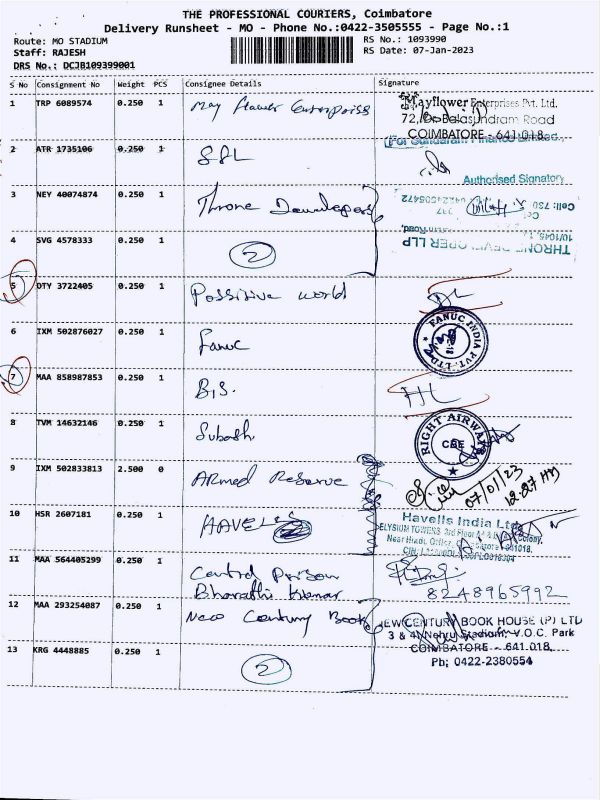 THE PROFESSIONAL COURIERS, Coimbatore
Delivery Runsheet - MO - Phone No.:0422-3505555 - Page No.:1
Route: MO STADIUM
RS No.: 1093990
Staff: RAJESH
RS Date: 07-Jan-2023
DRS No.: DCJB109399001
S No Consignment No Weight PCS Consignee Details Signature
1 TRP 6089574 0.250 1 May flower Enterprises
Mayflower Enterprises Pvt. Ltd.
72, Balasundram Road
COIMBATORE - 641 018
2 ATR 1735106 0.250 1 SFL
For Sundaram Finance Limited.
Authorised Signatory
3 NEY 40074874 0.250 1 Throne Developers
4 SVG 4578333 0.250 1 2
5 DTY 3722405 0.250 1 Possitive world
6 IXM 502876027 0.250 1 Fanuc
FANUC INDIA PVT. LTD.
7 MAA 858987853 0.250 1 B.S.
8 TVM 14632146 0.250 1 Subash
RIGHT AIRWAYS
CBE
9 IXM 502833813 2.500 0 Armed Reserve
07/01/23
10 HSR 2607181 0.250 1 HAVELLS
Havells India Ltd
ELYSIUM TOWERS 3rd Floor
11 MAA 564405299 0.250 1 Central Prison
Bharathi Kumar
8248965992
12 MAA 293254087 0.250 1 New Century Book
NEW CENTURY BOOK HOUSE (P) LTD
3 & 4, Nehru Stadium, V.O.C. Park
COIMBATORE - 641 018.
Pb; 0422-2380554
13 KRG 4448885 0.250 1 2